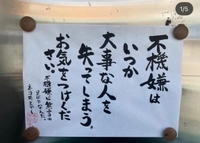 1/5
不機嫌は
いつか
大事な人を
失ってしまう。
お気をつけくだ
さい。